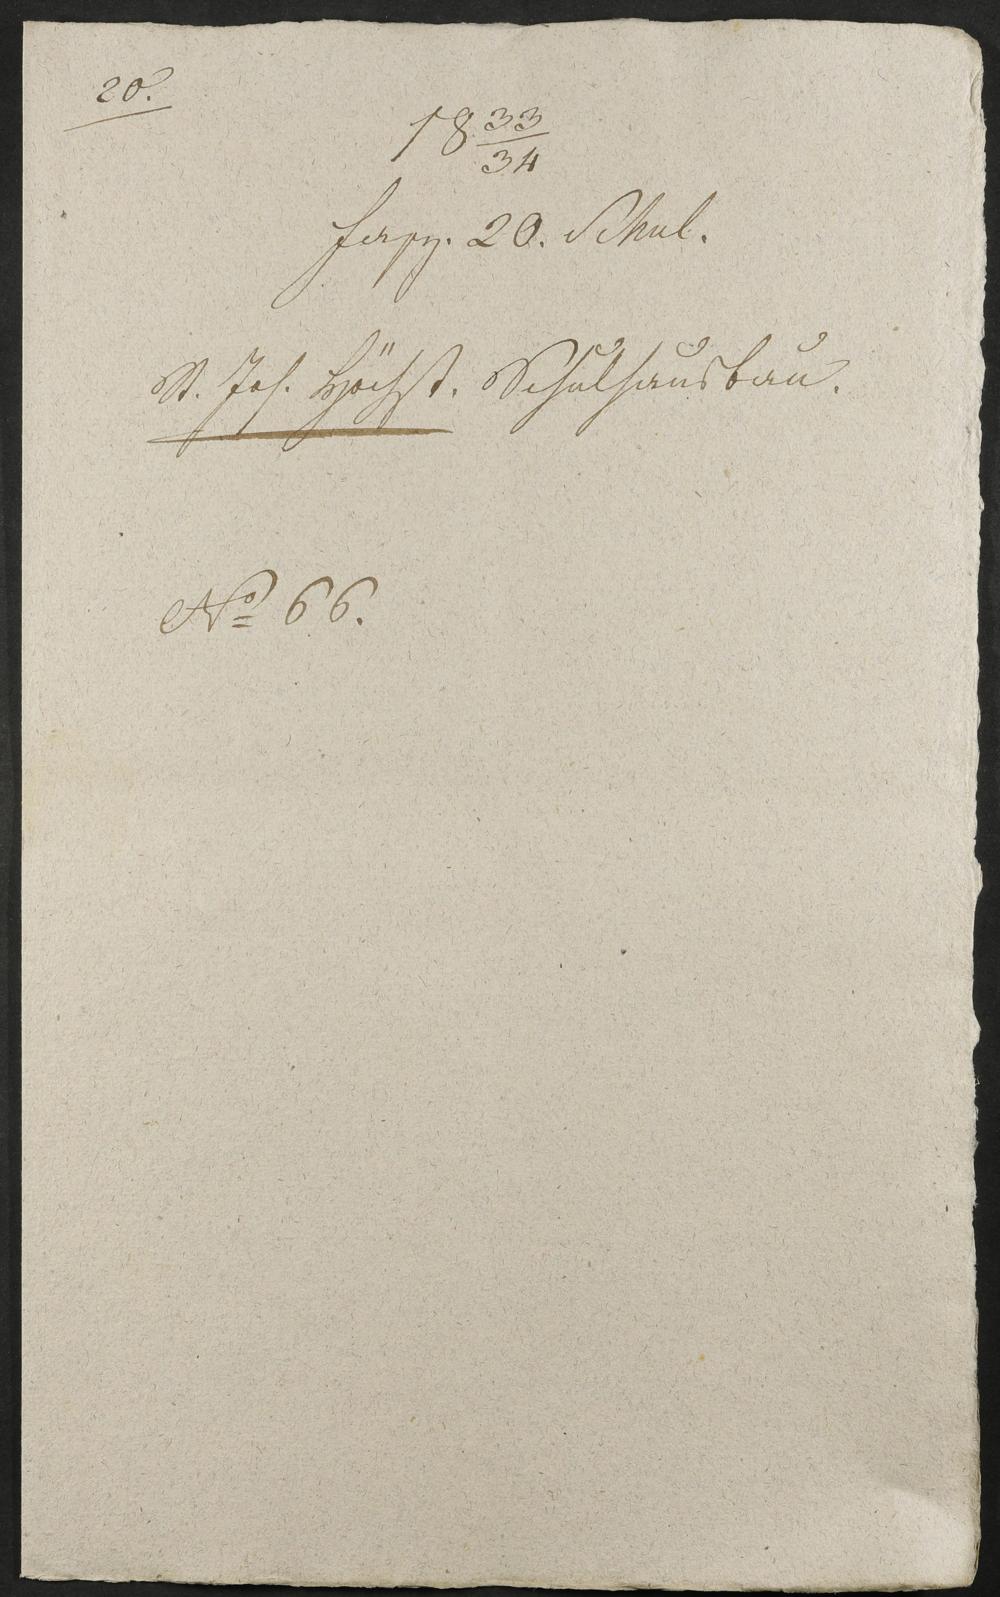 20.
18 33/34
Fasz. 20. Schul.
St. Joh. Höchst. Schulhausbau.
No 66.